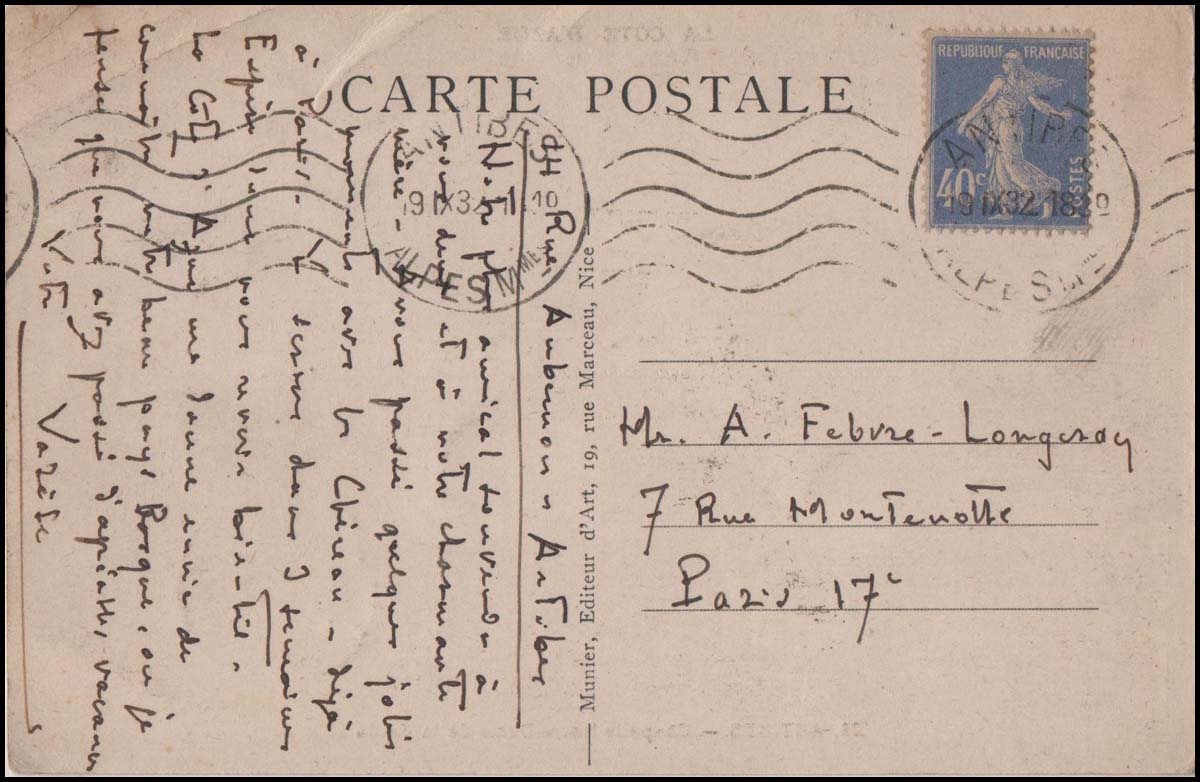 CARTE POSTALE
REPUBLIQUE FRANÇAISE
40c
POSTES
ANTIBES
19 IX 32 18
ALPES Mmes
ANTIBES
19 IX 32
ALPES Mmes
Munier, Editeur d'Art, 19, rue Marceau, Nice
Mr. A. Febvre-Longeray
7 Rue Montenotte
Paris 17e
Rue Aubernon Antibes
Notre amical souvenir à
vous deux et à votre charmante
nière - Avons passé quelques jolis
moments avec les - déjà
à Paris - Y serons dans 3 semaines
Espère que vous nous
La Côte d'Azur me donne envie de
connaître votre beau pays Basque, où je
pense que vous avez passé d'agréables vacances
Votre
Varèse